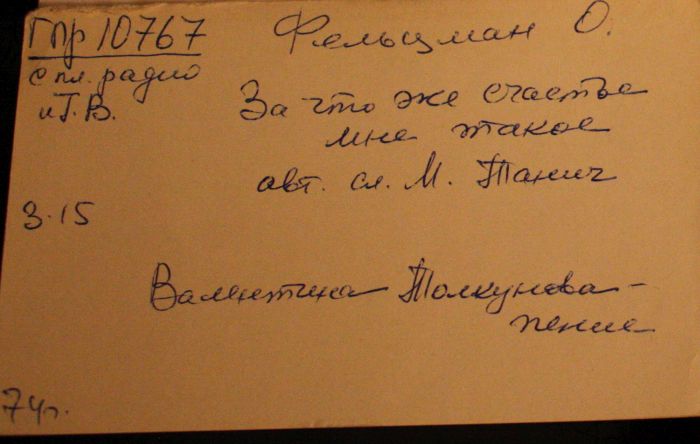 Гпр 10767
с пл. радио
и Т.В.
Фельцман О.
За что же счастье
мне такое
авт. сл. М. Танич
3.15
Валентина Толкунова –
пение
74г.